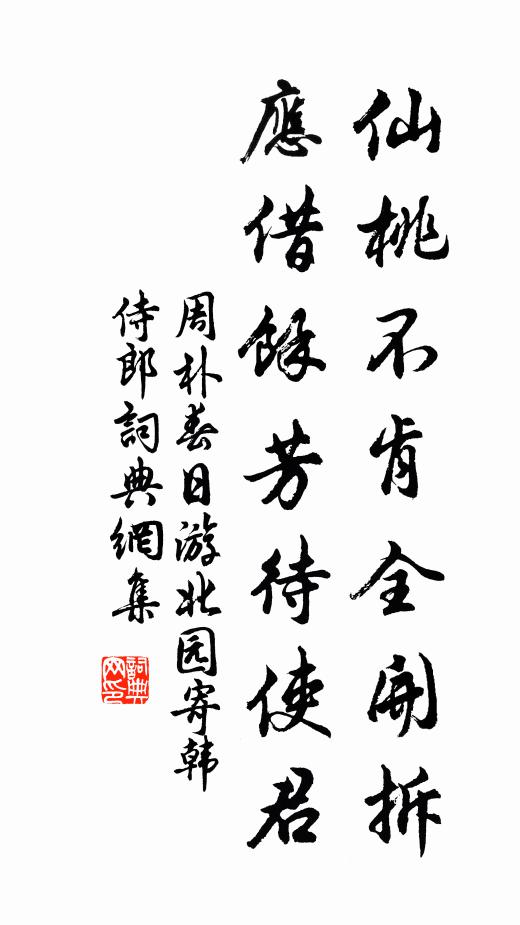 仙桃不肯全開拆
應借餘芳待使君
周朴春日游北园寄韩
侍郎詞典網集
詞典網印